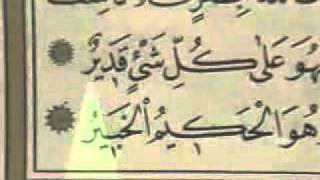 فَهُوَ عَلَىٰ كُلِّ شَیْءٍ قَدِيرٌ
وَهُوَ الْحَكِيمُ الْخَبِيرُ